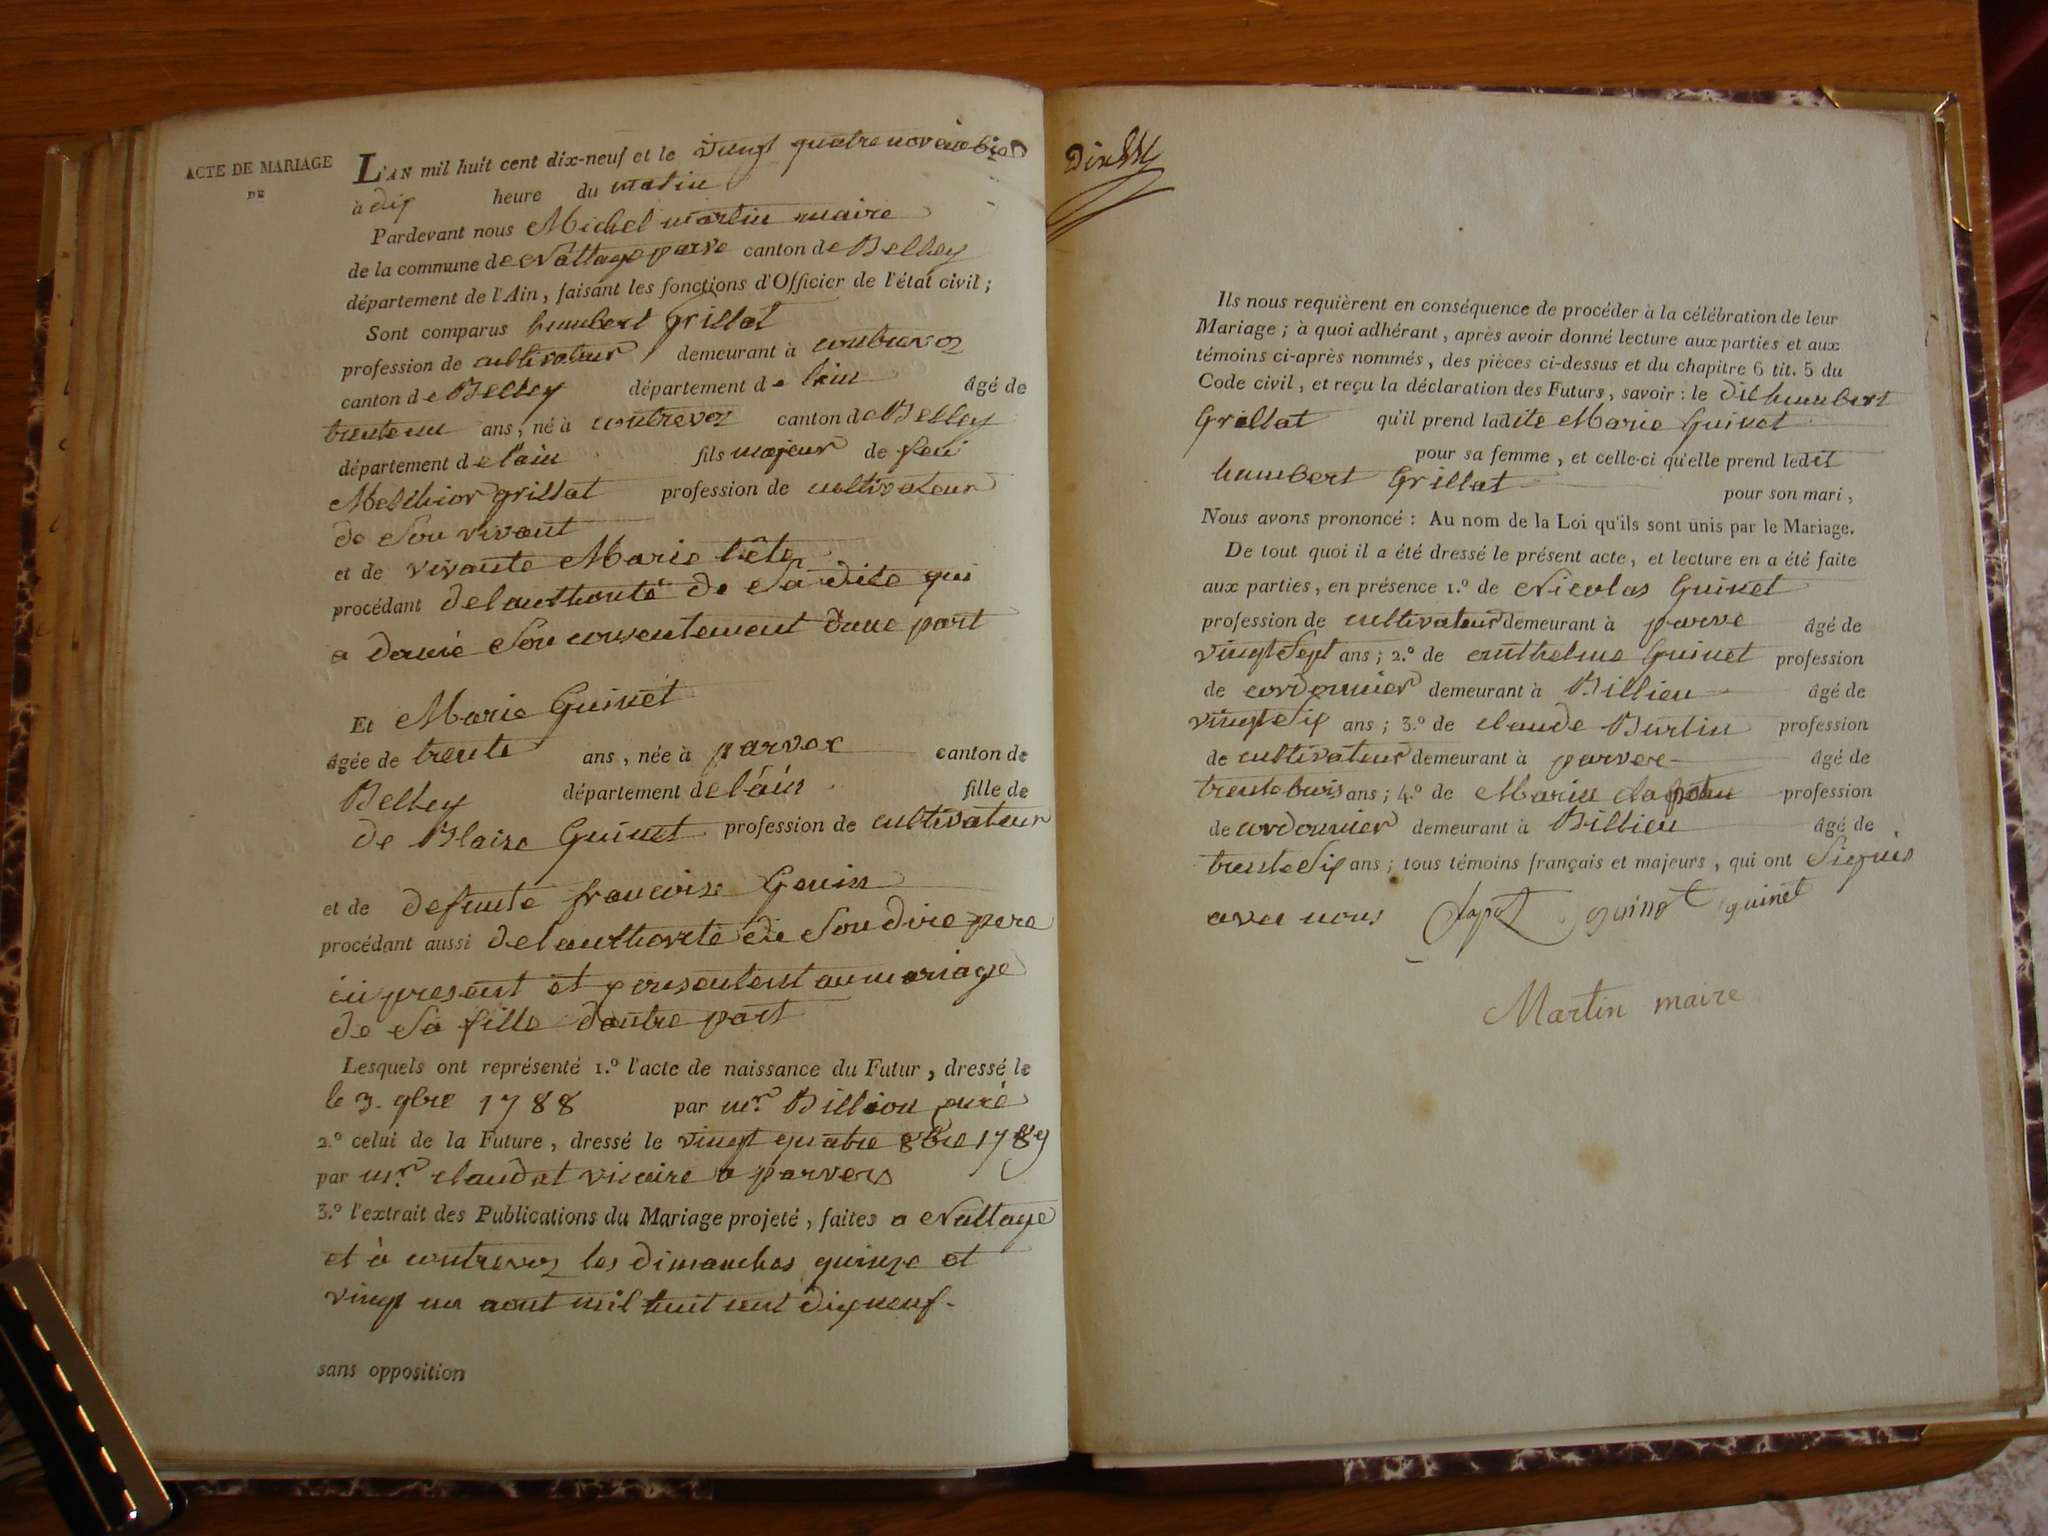 ACTE DE MARIAGE
DE
L'AN mil huit cent dix-neuf et le vingt quatre novembre
à dix heure du matin
Pardevant nous Michel martin maire
de la commune de Nattage parve canton de Belley
département de l'Ain, faisant les fonctions d'Officier de l'état civil ;
Sont comparus humbert Grillat
profession de cultivateur demeurant à contrevoz
canton de Belley département de lain âgé de
trente un ans, né à contrevoz canton de Belley
département de lain fils majeur de feu
Melchior grillat profession de cultivateur
de son vivant
et de vivante Marie
procédant de lauthorité de sa dite qui
a donné son consentement dune part
Et Marie Guinet
âgée de trente ans, née à parvex canton de
Belley département de lain fille de
de Blaise Guinet profession de cultivateur
et de defunte francoise Gouin
procédant aussi de lauthorité de son dire pere
ici present et consentent au mariage
de sa fille dautre part
Lesquels ont représenté 1.º l'acte de naissance du Futur, dressé le
le 3. 9bre 1788 par mr. Billion curé
2.º celui de la Future, dressé le vingt quatre 8bre 1789
par mr. claudat vicaire a parvex
3.º l'extrait des Publications du Mariage projeté, faites a Nattage
et à contrevoz les dimanches quinze et
vingt un aout mil huit cent dix neuf.
sans opposition
Ils nous requièrent en conséquence de procéder à la célébration de leur
Mariage ; à quoi adhérant, après avoir donné lecture aux parties et aux
témoins ci-après nommés, des pièces ci-dessus et du chapitre 6 tit. 5 du
Code civil, et reçu la déclaration des Futurs, savoir : le dit humbert
Grillat qu'il prend ladite Marie Guinet
pour sa femme, et celle-ci qu'elle prend ledit
humbert Grillat pour son mari,
Nous avons prononcé : Au nom de la Loi qu'ils sont unis par le Mariage.
De tout quoi il a été dressé le présent acte, et lecture en a été faite
aux parties, en présence 1.º de Nicolas Guinet
profession de cultivateur demeurant à parve âgé de
vingt sept ans ; 2.º de anthelme Guinet profession
de cordonnier demeurant à Billieu âgé de
vingt six ans ; 3.º de claude Burtin profession
de cultivateur demeurant à parvex âgé de
trente trois ans ; 4.º de Marin profession
de cordonnier demeurant à Billieu âgé de
trente six ans ; tous témoins français et majeurs, qui ont signés
avec nous guinet guinet
Martin maire